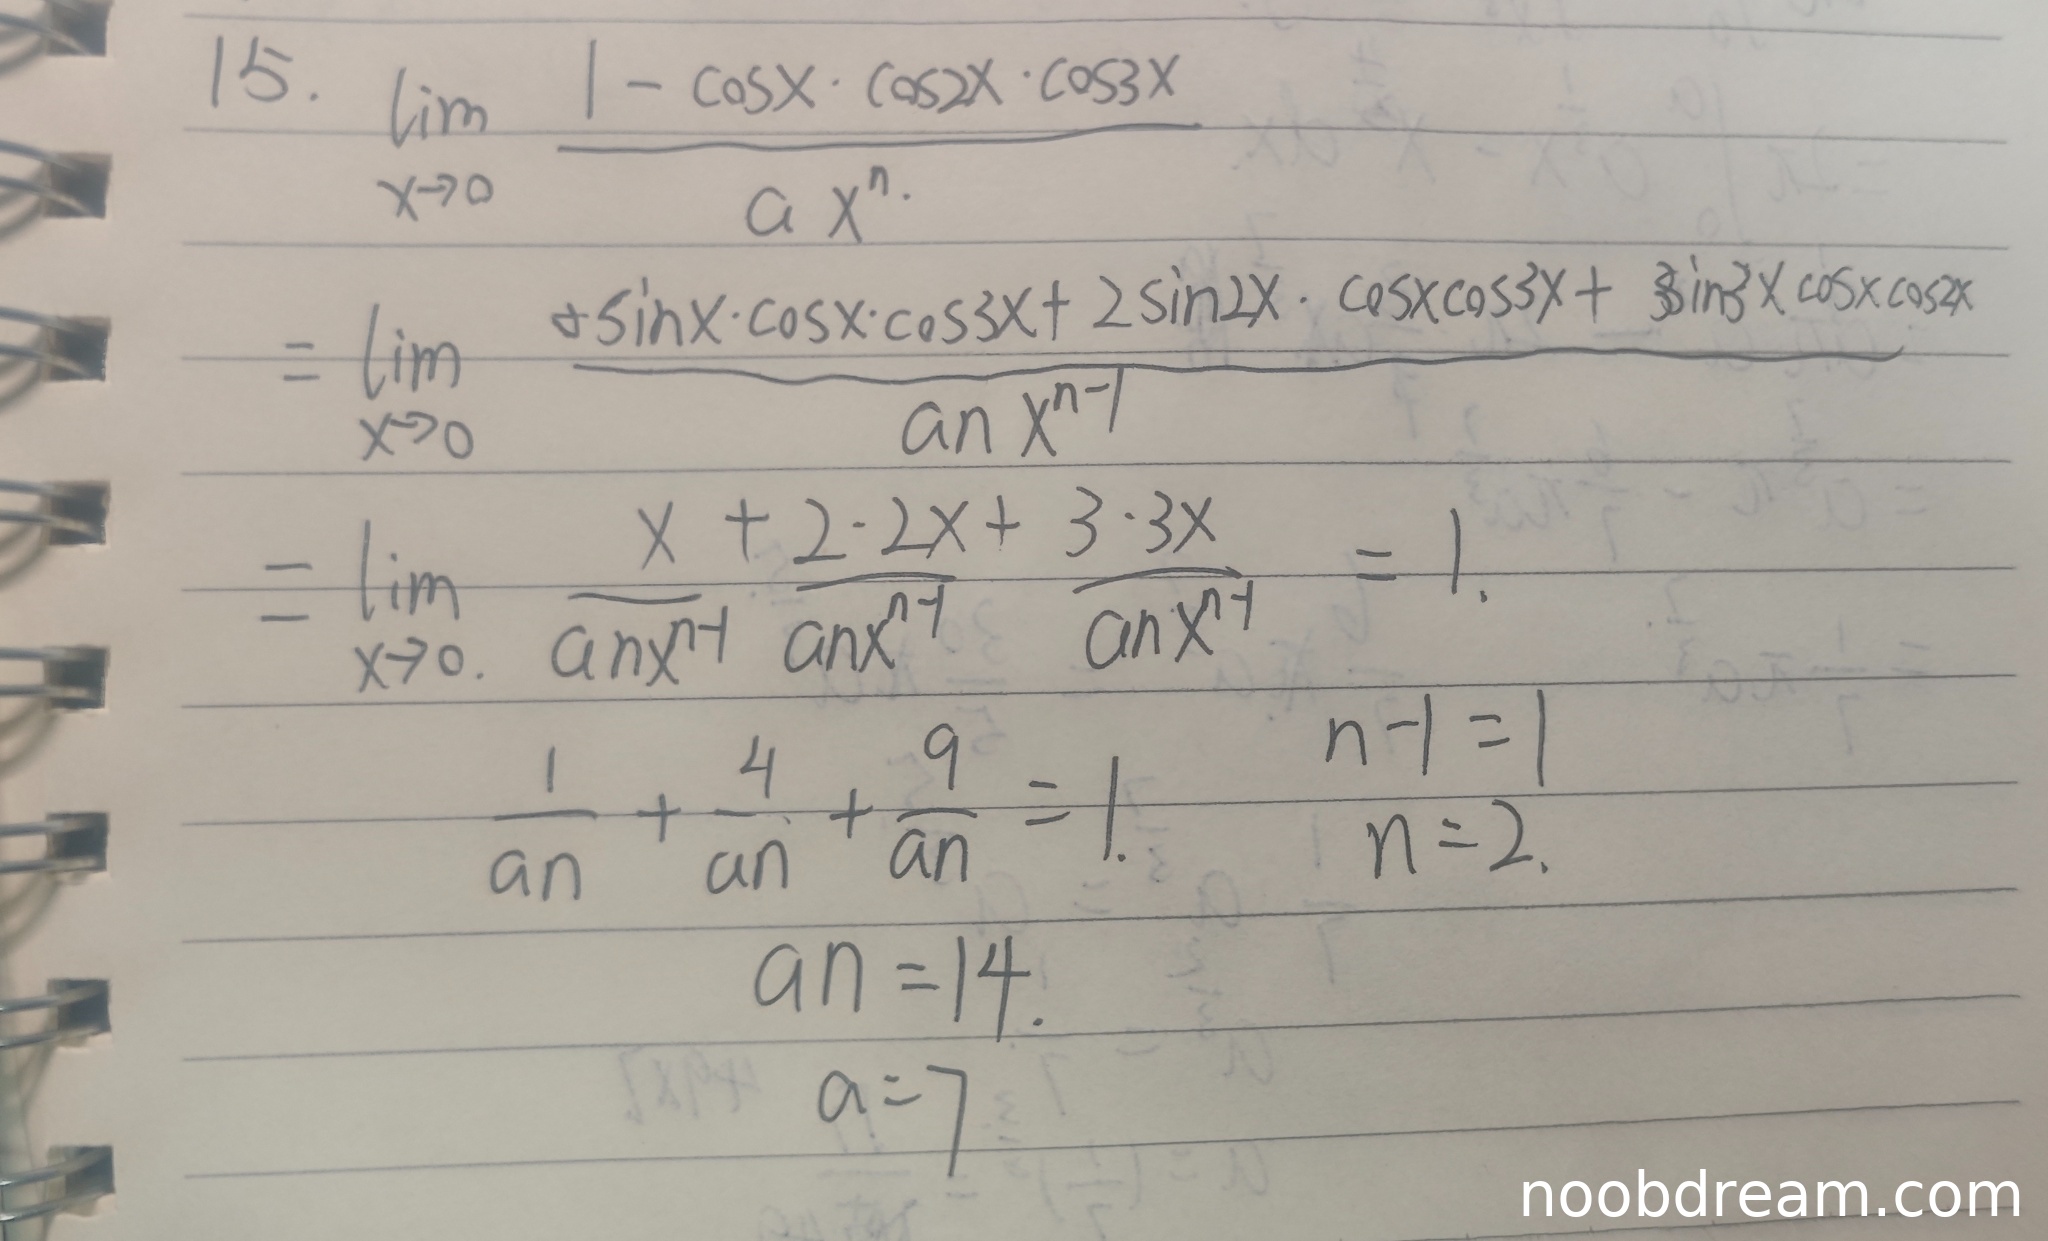 15. lim x→0 (1 - cosx · cos2x · cos3x) / (a xⁿ)
= lim x→0 (+sinx · cosx · cos3x + 2sin2x · cosxcos3x + 3sin3x cosx cos2x) / (an xⁿ⁻¹)
= lim x→0. x/(anxⁿ⁻¹) + 2·2x/(anxⁿ⁻¹) + 3·3x/(anxⁿ⁻¹) = 1.
1/an + 4/an + 9/an = 1. n-1=1
n=2.
an=14.
a=7
noobdream.com